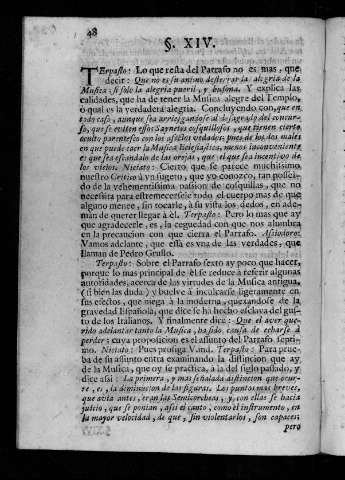 48
§. XIV.
Terpasto: Lo que resta del Parrafo no es mas, que
decir: Que no es su animo desterrar la alegria de la
Musica, si solo la alegria pueril, y bufona. Y explica las
calidades, que ha de tener la Musica alegre del Templo,
y qual es la verdadera alegria. Concluyendo con, que en
todo caso, aunque sea arriesgandose al desagrado del concur-
so, que se eviten essos Saynetes cosquillosos, que tienen cierto
oculto parentesco con los afectos vedados: pues de los dos males
en que puede caer la Musica Eclesiastica, menos inconveniente
es que sea escandalo de las orejas, que el que sea incentivo de
los vicios. Nictato: Cierto que se parece muchissimo
nuestro Critico à vn sugeto, que yo conozco, tan possei-
do de la vehementissima passion de cosquillas, que no
necessita para estremecersele todo el cuerpo mas de que
alguno menee, sin tocarle, à su vista los dedos, en ade-
màn de querer llegar à èl. Terpasto: Pero lo mas que ay
que agradecerle, es, la ceguedad con que nos alumbra
en la precaucion con que cierra el Parrafo. Assiolore:
Vamos adelante, que essa es vna de las verdades, que
llaman de Pedro Grullo.
Terpasto: Sobre el Parrafo sexto ay poco que hacer,
porque lo mas principal de èl se reduce à referir algunas
autoridades, acerca de las virtudes de la Musica antigua,
(si bien las duda) y buelve à inculcarse ligeramente en
sus efectos, que niega à la moderna, quexandose de la
gravedad Española, que dice se ha hecho esclava del gus-
to de los Italianos. Y finalmente dice: Que el aver que-
rido adelantar tanto la Musica, ha sido causa de echarse à
perder; cuya proposicion es el assunto del Parrafo septi-
mo. Nictato: Pues prosiga Vmd. Terpasto: Para prue-
ba de su assunto entra examinando la distincion que ay
de la Musica, que oy se practica, à la del siglo passado, y
dice assi: La primera, y mas señalada distincion que ocur-
re, es, la diminucion de las figuras. Los puntos mas breves,
que avia antes, eran las Semicorcheas; y con ellas se hacia
juicio, que se ponian, assi el canto, como el instrumento, en
la mayor velocidad, de que, sin violentarlos, son capaces:
pero